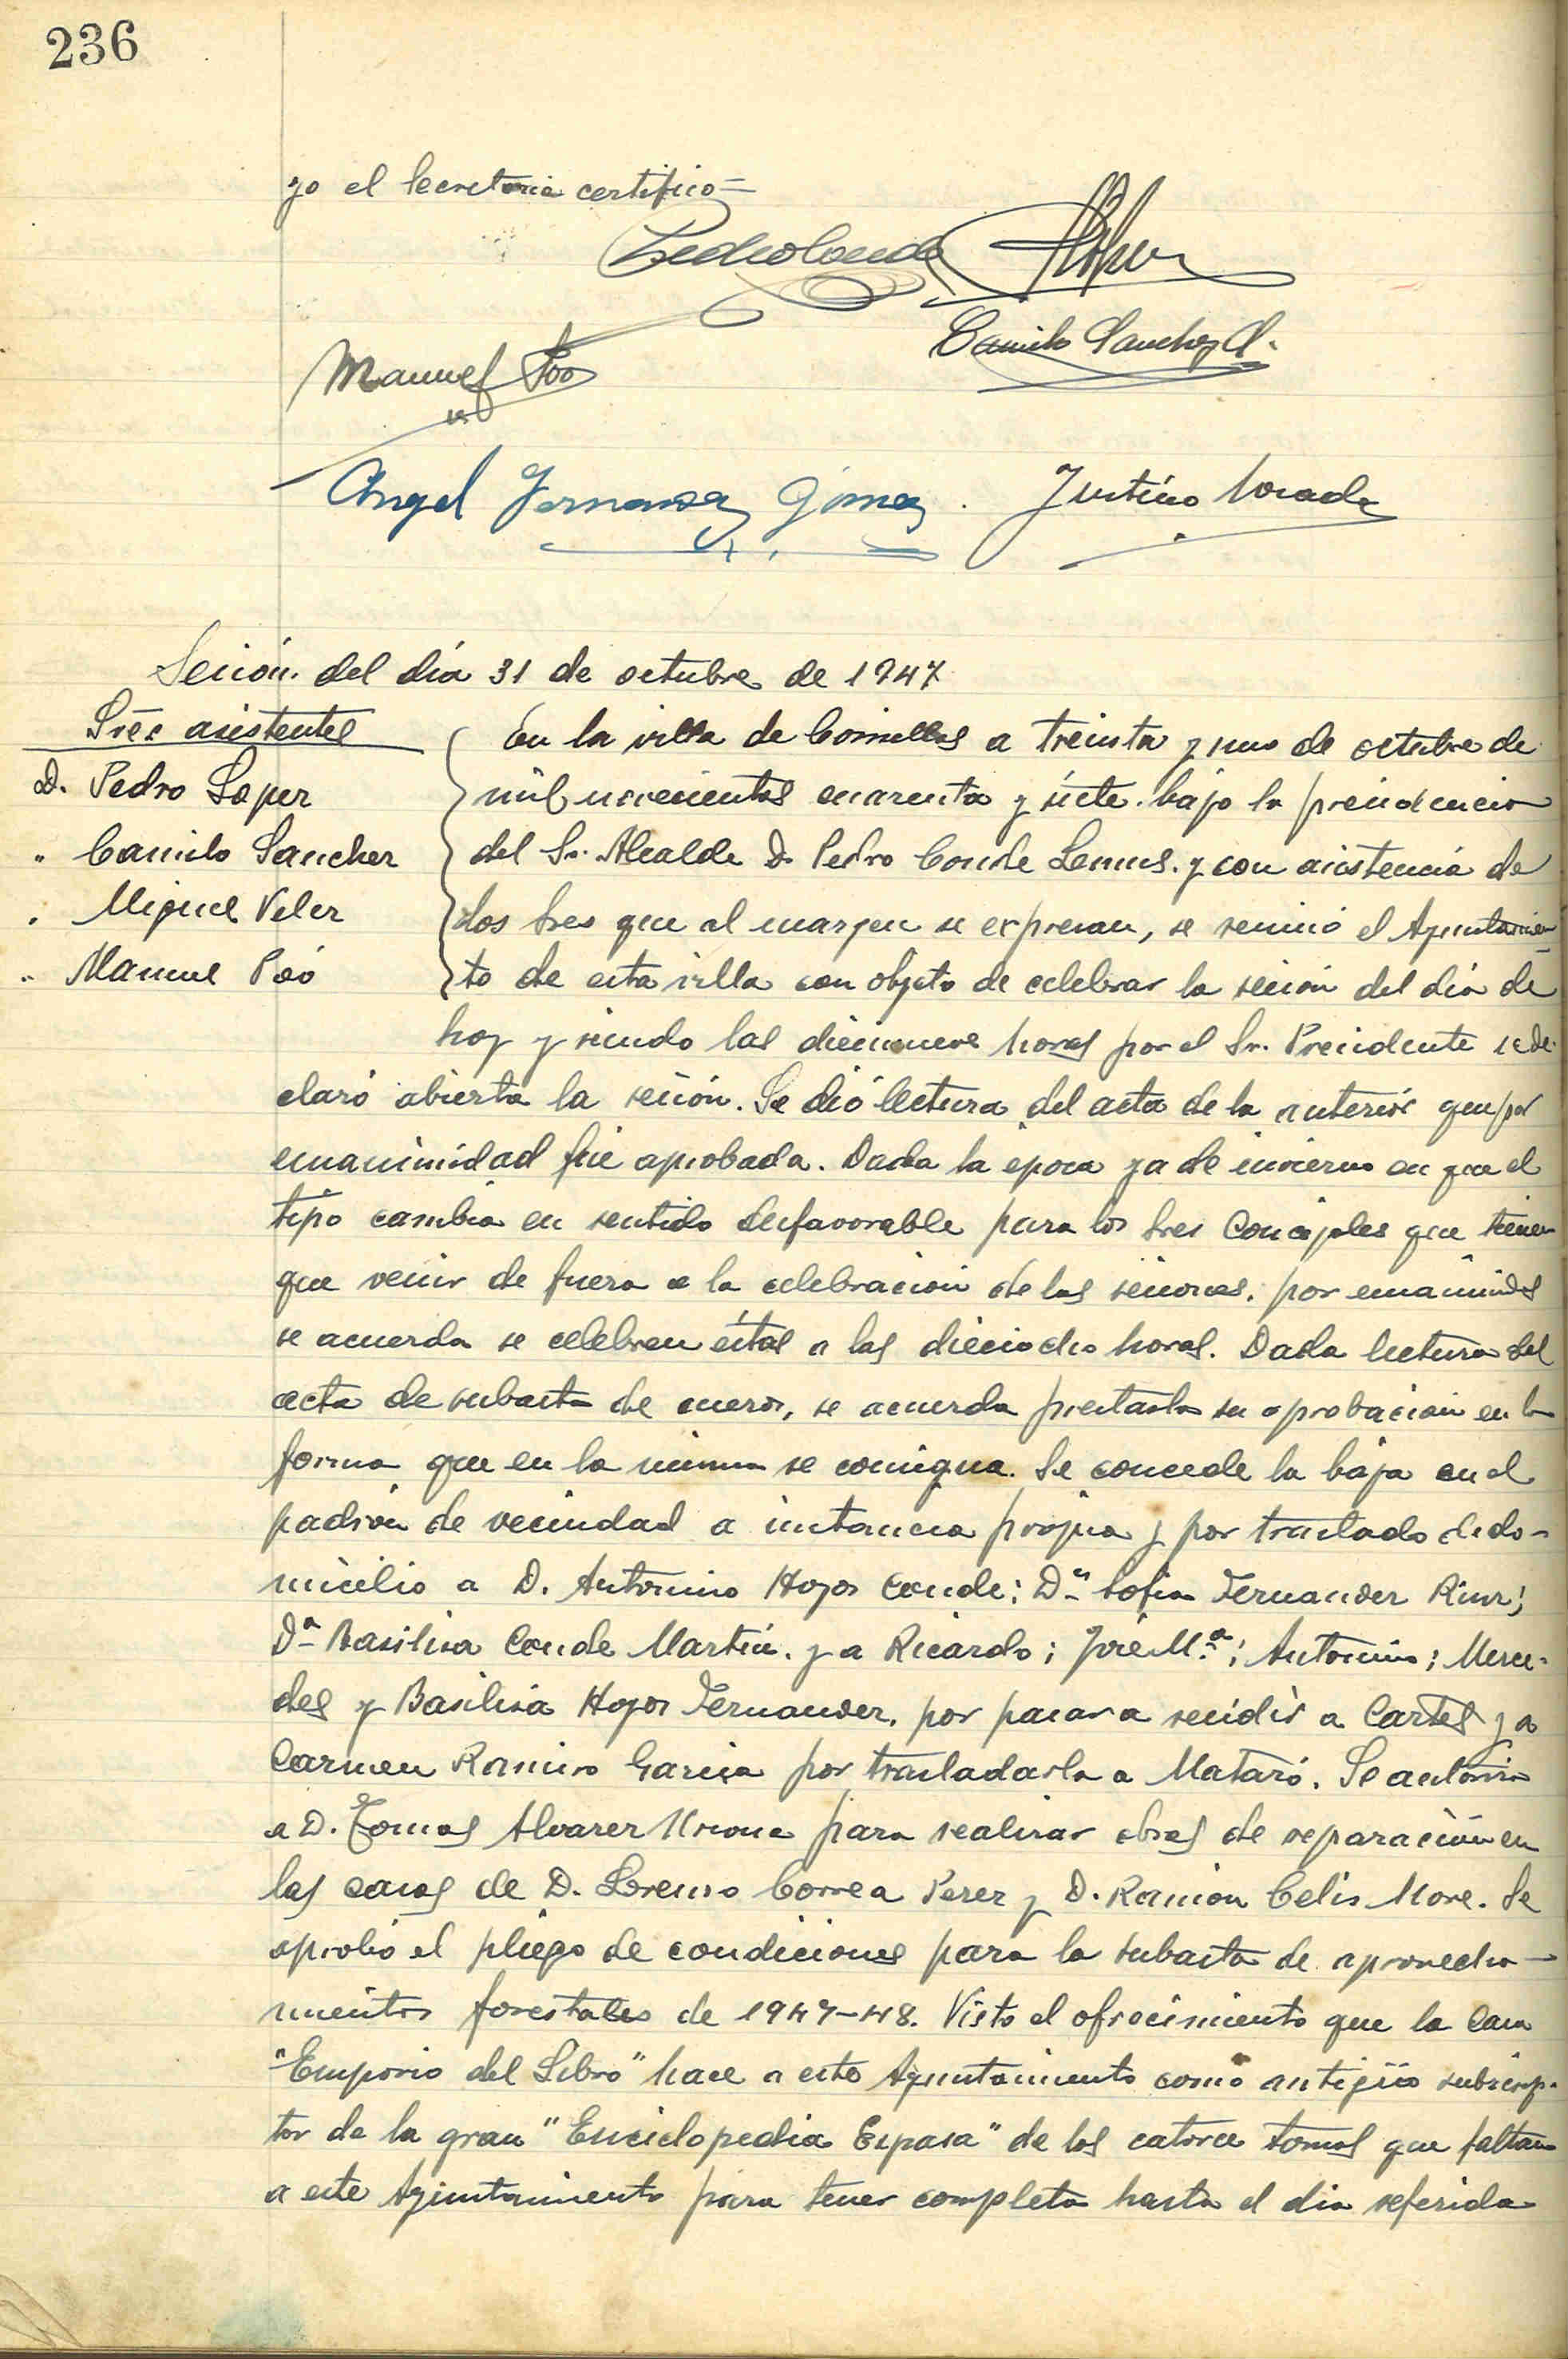 236
yo el Secretario certifico=
Pedro Conde
Camilo Sanchez
Manuel Póo
Angel Fernandez Gómez. Justino
Sesión del día 31 de octubre de 1947
Sres asistentes
D. Pedro Lopez
" Camilo Sanchez
" Miguel Velez
" Manuel Póo
En la villa de Comillas a treinta y uno de octubre de
mil novecientos cuarenta y siete. bajo la presidencia
del Sr. Alcalde D. Pedro Conde Lemus. y con asistencia de
los Sres que al margen se expresan, se reunió el Ayuntamien
to de esta villa con objeto de celebrar la sesión del día de
hoy y siendo las diecinueve horas por el Sr. Presidente se de-
claró abierta la sesión. Se dió lectura del acta de la anterior que por
unanimidad fué aprobada. Dada la epoca ya de invierno en que el
tipo cambia en sentido desfavorable para los Sres Concejales que tienen
que venir de fuera a la celebración de las sesiones, por unanimidad
se acuerda se celebren éstas a las dieciocho horas. Dada lectura del
acta de subasta de cueros, se acuerda prestarla su aprobación en la
forma que en la misma se consigna. Se concede la baja en el
padrón de vecindad a instancia propia y por traslado de do-
micilio a D. Antonino Hoyos Conde; Dª Sofia Fernandez Ruiz;
Dª Basilisa Conde Martín. y a Ricardo; José Mª; Antonino; Merce-
des y Basilisa Hoyos Fernandez, por pasar a residir a Cartes y a
Carmen Ramiro Garcia por trasladarla a Mataró. Se autoriza
a D. Tomas Alvarez para realizar obras de reparación en
las casas de D. Lorenzo Correa Perez y D. Ramón Celis More. Se
aprobó el pliego de condiciones para la subasta de aprovecha-
mientos forestales de 1947-48. Visto el ofrecimiento que la Casa
"Emporio del Libro" hace a este Ayuntamiento como antigüo subscrip-
tor de la gran "Enciclopedia Espasa" de los catorce tomos que faltan
a este Ayuntamiento para tener completa hasta el dia referida